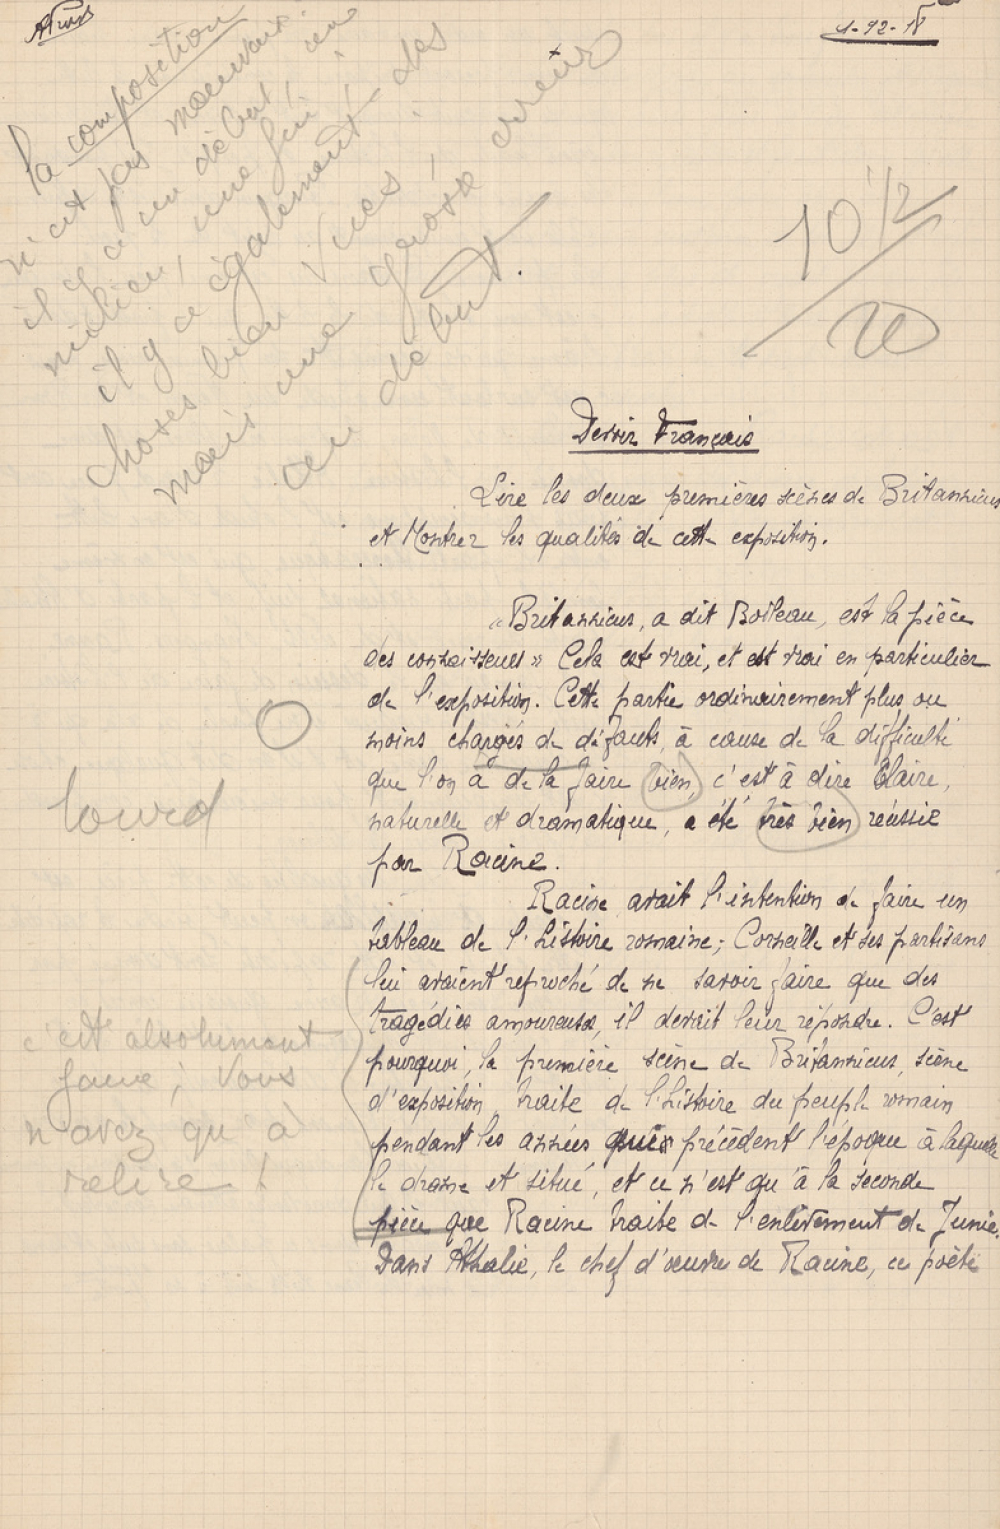 la composition
n'est pas mauvaise
il y a un début, un
milieu, une fin ;
il y a également des
choses bien vues,
mais une grosse erreur
au début.
10 1/2
20
Devoir Français
Lire les deux premières scènes de Britannicus
et Montrer les qualités de cette exposition.
"Britannicus, a dit Boileau, est la pièce
des connaisseurs" Cela est vrai, et est vrai en particulier
de l'exposition. Cette partie ordinairement plus ou
moins chargés de défauts, à cause de la difficulté
que l'on à de la faire bien, c'est à dire Claire,
naturelle et dramatique, a été très bien réussie
par Racine.
lourd
Racine avait l'intention de faire un
tableau de l'histoire romaine; Corneille et ses partisans
lui avaient reproché de ne savoir faire que des
tragédies amoureuses, il devait leur répondre. C'est
pourquoi, la première scène de Britannicus, scène
d'exposition, traite de l'histoire du peuple romain
pendant les années qui précèdent l'époque à laquelle
le drame et situé, et ce n'est qu'à la seconde
pièce que Racine traite de l'enlèvement de Junie.
Dans Athalie, le chef d'œuvre de Racine, ce poète
c'est absolument
faux ; Vous
n'avez qu'à
relire !